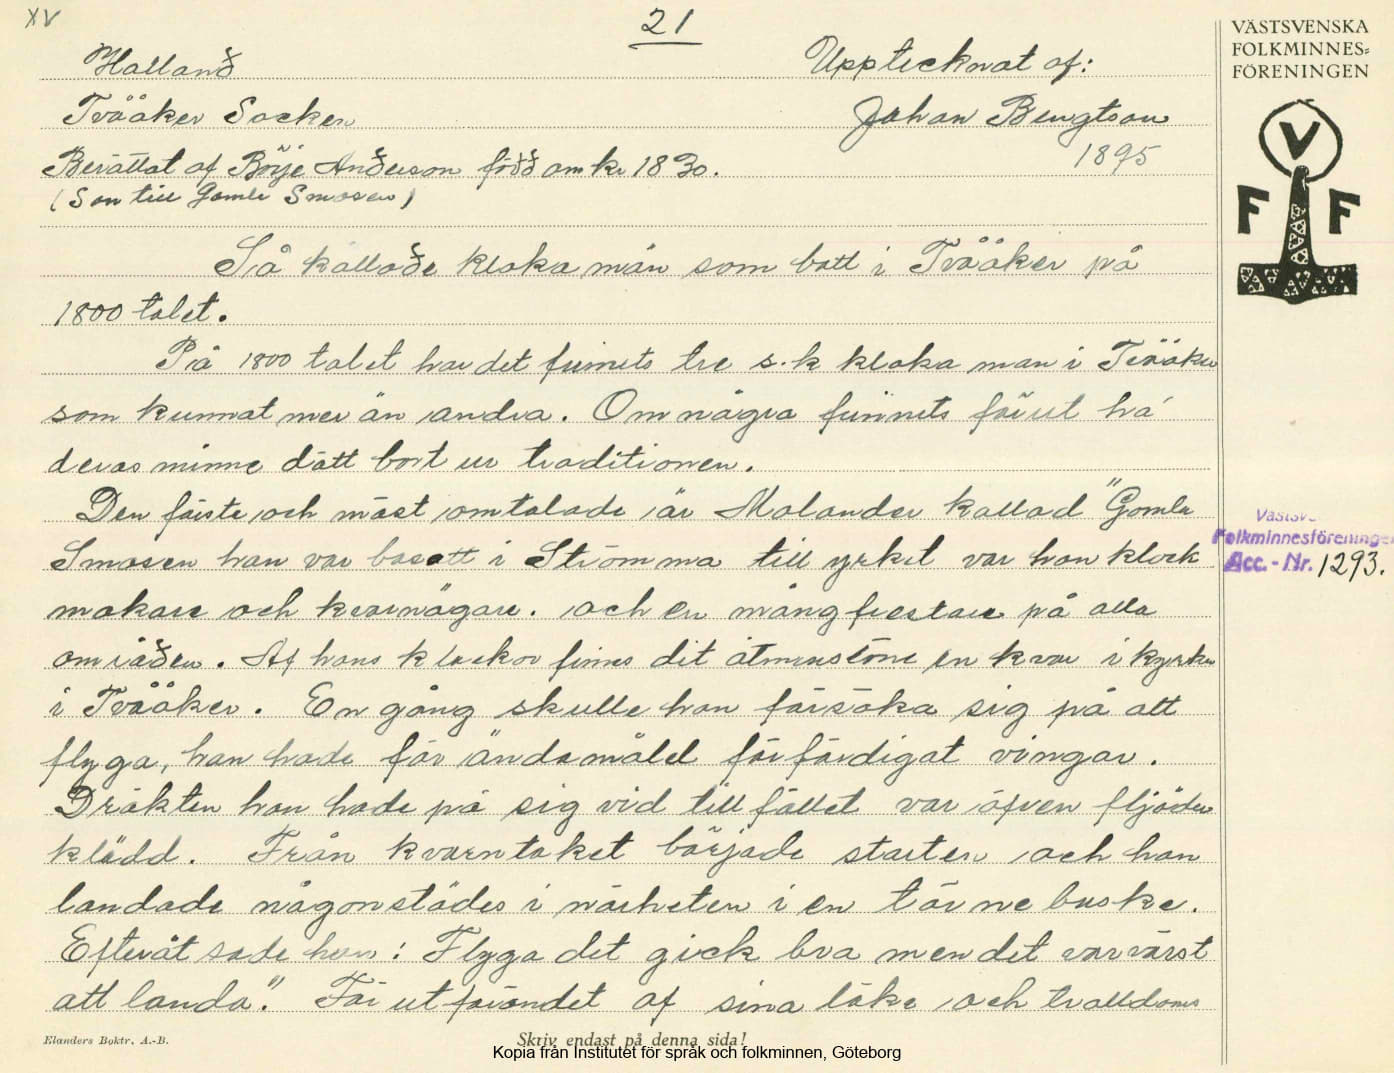 XV
21
VÄSTSVENSKA
FOLKMINNES-
FÖRENINGEN
Halland
Upptecknat af:
Tvååker Socken
Johan Bengtson
Berättat af Börje Anderson född omkr 1830.
1895
(Son till Gamle Smasen)
V
F F
Så kallade kloka män som bott i Tvååker på
1800 talet.
På 1800 talet har det funnits tre s.k kloka män i Tvååker
som kunnat mer än andra. Om några funnits förut ha
deras minne dött bort ur traditionen.
Den förste och mäst omtalade är Molander kallad "Gamle
Smasen han var bosatt i Strömma till yrket var han klock
makare och kvarnägare. och en mångfrestare på alla
områden. Af hans klockor finns dit åtminstone en kvar i kyrkan
i Tvååker. En gång skulle han försöka sig på att
flyga, han hade för ändamålet förfärdigat vingar.
Dräkten han hade på sig vid tillfället var äfven fljäder
klädd. Från kvarntaket började starten och han
landade någonstädes i närheten i en törnebuske.
Efteråt sade han: Flyga det gick bra men det var värst
att landa". För utförandet af sina läke och trolldoms
Västsv
Folkminnesföreningen
Acc.-Nr. 1293.
Elanders Boktr. A.-B.
Skriv endast på denna sida!
Kopia från Institutet för språk och folkminnen, Göteborg